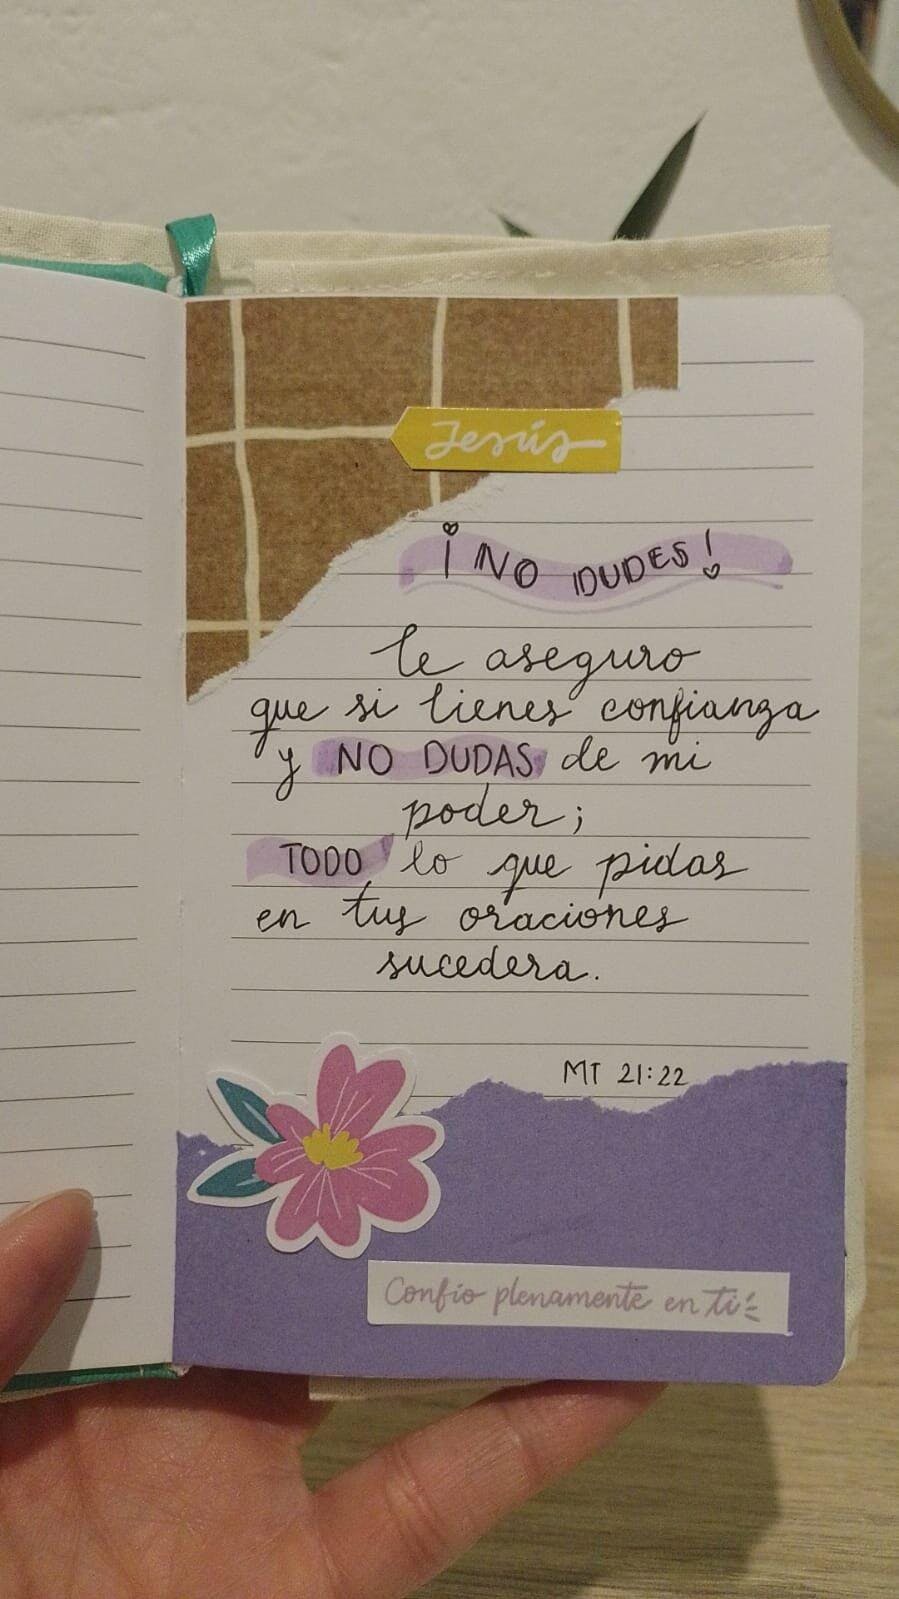 Jesús
¡NO DUDES!
Te aseguro
que si tienes confianza
y NO DUDAS de mi
poder;
TODO lo que pidas
en tus oraciones
sucedera.
MT 21:22
Confío plenamente en ti